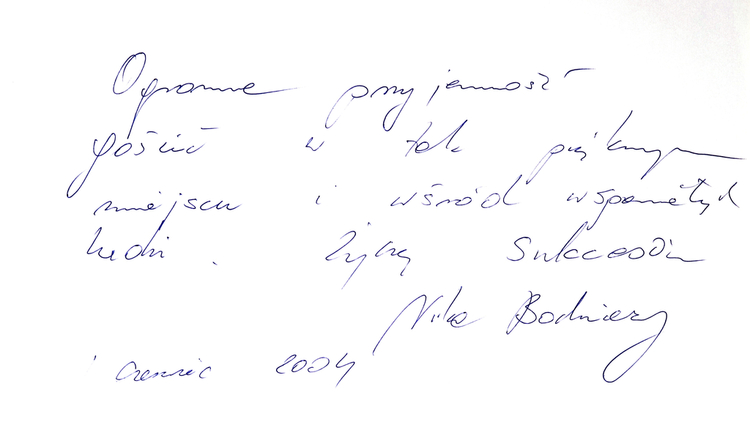 Ogromna przyjemność
gościć w tak pięknym
miejscu i wśród wspaniałych
ludzi. Życzę sukcesów
Nika
czerwiec 2004